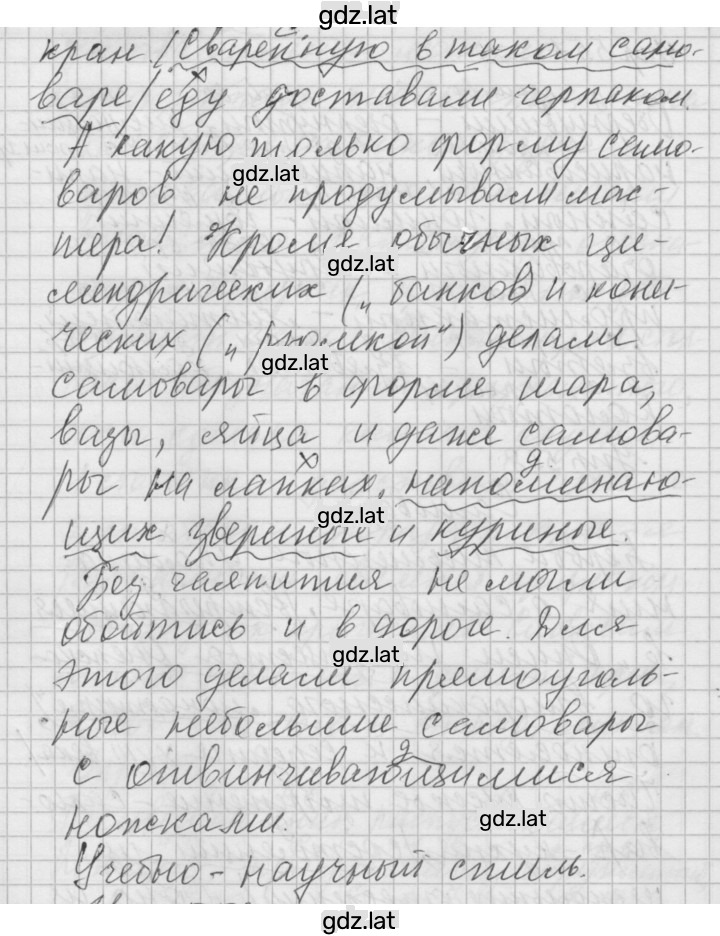 gdz.lat
кран. / Сваренную в таком само-
варе / еду доставали черпаком.
А какую только форму само-
gdz.lat
варов не продумывали мас-
тера! Кроме обычных ци-
gdz.lat
линдрических („банков) и кони-
ческих („рюмкой“) делали
gdz.lat
самовары в форме шара,
вазы, яйца и даже самова-
ры на лапках, напоминаю-
gdz.lat
щих звериные и куриные.
Без чаепития не могли
обойтись и в дороге. Для
gdz.lat
этого делали прямоуголь-
ные небольшие самовары
с отвинчивающимися
gdz.lat
ножками.
Учебно-научный стиль.
gdz.lat